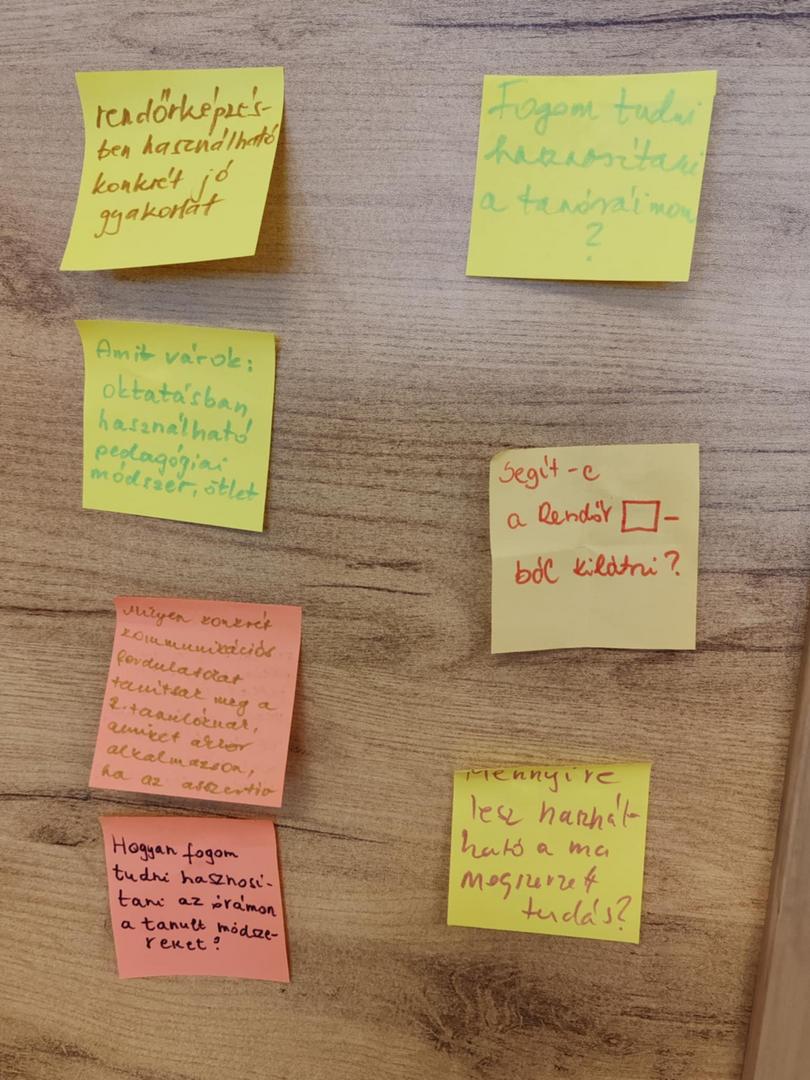 rendőrképzés-
ben használható
konkrét jó
gyakorlat
Amit várok:
oktatásban
használható
pedagógiai
módszer, ötlet
Milyen konkrét
kommunikációs
fordulatokat
tanítsak meg a
r. tanulóknak,
amiket akkor
alkalmazzon,
ha az asszertív
Hogyan fogom
tudni hasznosí-
tani az órámon
a tanult módsze-
reket?
Fogom tudni
hasznosítani
a tanóráimon
?
Segít-e
a Rendőr □-
ból kilátni?
Mennyire
lesz használ-
ható a ma
megszerzett
tudás?